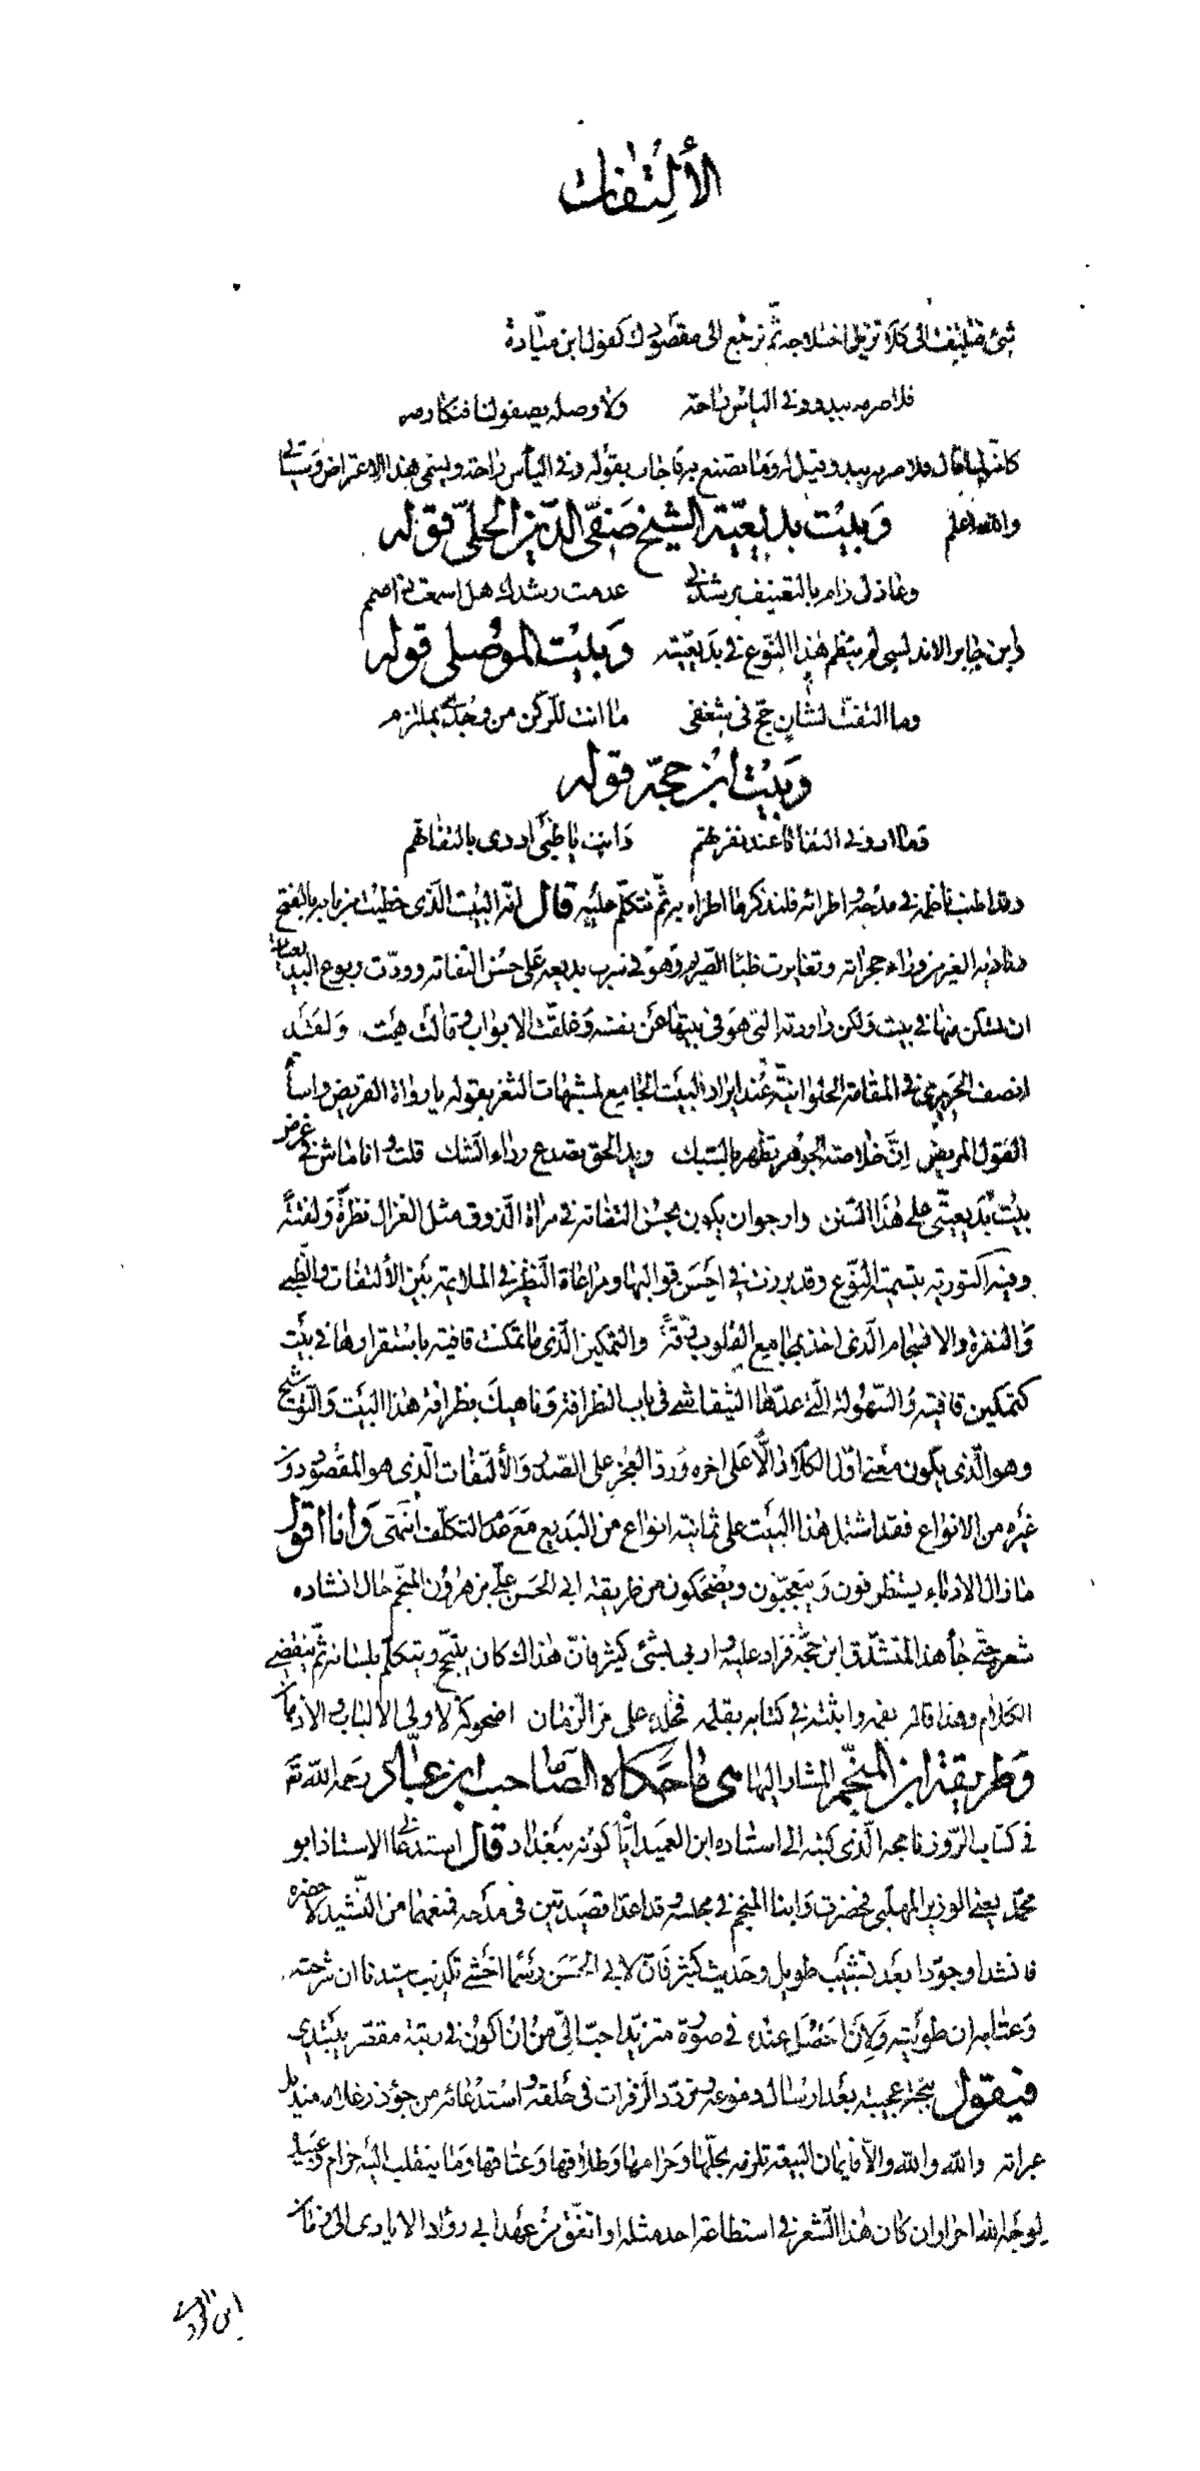 الألتفات
شئ فتلتفت الى كلام تزيل اختلاجه ثم ترجع الى مقصودك كقول ابن ميادة
فلا صرمه يبدو وفي اليأس راحة ولا وصله يصفو لنا فنكارمه
كانه لما قال فلا صرمه يبدو وقيل له وما تصنع به فاجاب بقوله وفي اليأس راحة ويسمى هذا الاعتراض وسيأتي
والله اعلم وبيت بديعية الشيخ صفي الدين الحلي قوله
وعاذل رام بالتعنيف يرشدني عدمت رشدك هل اسمعت ذا صمم
وابن جابر الاندلسي لم ينظم هذا النوع في بديعيته وبيت الموصلي قوله
وما التفت لشان حج في شغفي ما انت للركن من وجدي بملتزم
وبيت ابن حجة قوله
وما اروني التفاتا عند نفرتهم وانت يا ظبي ادرى بالتفاتهم
وقد اطنب ناظمه في مدحه واطرائه فلنذكر ما اطراه به ثم نتكلم عليه قال انه البيت الذي حظيت من بابه بالفتح
وناداني الغير من وراء حجراته وتغايرت ظباء الصريم وهو في سرب بديعه على حسن التفاته وودت ربوع البديعيات
ان تسكن منها في بيت ولكن راودته التي هو في بيتها عن نفسه وغلقت الابواب وقالت هيت ولقد
انصف الحريري في المقامة الحلوانية عند ايراد البيت الجامع لمشبهات الثغر بقوله يا رواة القريض واساة
القول المريض ان خلاصة الجوهر تظهر بالسبك ويد الحق تصدع رداء الشك قلت وانا ماش في عرض
بيت بديعيتي على هذا السنن وارجو ان يكون بحسن التفاته في مراة الذوق مثل الغزال نظرة ولفتة
وفيه التورية بتسمية النوع وقد برزت في احسن قوالبها ومراعاة النظير في الملايمة بين الألتفات والظبي
والنفرة والانسجام الذي اخذ بمجاميع القلوب رقة والتمكين الذي ما تمكنت قافية باستقرارها في بيت
كتمكين قافيته والسهولة التي عدها التيفاشي في باب الظرافة وناهيك بظرافة هذا البيت والتوشيح
وهو الذي يكون معنى اول الكلام دالا على اخره ورد العجز على الصدر والألتفات الذي هو المقصود دون
غيره من الانواع فقد اشتمل هذا البيت على ثمانية انواع من البديع مع عدم التكلف انتهى وانا اقول
ما زال الادباء يستظرفون ويتعجبون ويضحكون من طريقة ابي الحسن علي بن هرون المنجم حال انشاده
شعره حتى جاء هذا المتشدق ابن حجة فزاد عليه واربى بشئ كثير فان هذاك كان يتبجح ويتكلم بلسانه ثم ينقضي
الكلام وهذا قاله بفمه واثبته في كتابه بقلمه فخلد على مر الزمان اضحوكة لاولي الالباب والاذهان
وطريقة ابن المنجم المشار اليها هي ما حكاه الصاحب ابن عباد رحمه الله تعالى
في كتاب الروزنامجه الذي كتبه الى استاده ابن العميد ايام كونه ببغداد قال استدعاني الاستاذ ابو
محمد يعني الوزير المهلبي فحضرت وابنا المنجم في مجلسه وقد اعدا قصيدتين في مدحه فمنعهما من النشيد لاحضره
فانشدا وجودا بعد تشبيب طويل وحديث كثير فان لابي الحسن رسما اخشى تكذيب سيدنا ان شرحته
وعتابه ان طويته ولان احصل عنده في صورة متزيد احب الي من ان اكون في رتبة مقصر يبتدي
فيقول ببحة عجيبة بعد ارسال دموعه وتردد الزفرات في حلقه واستدعائه من جؤذر غلامه منديل
عبراته والله والله والا فايمان البيعة تلزمه بحلها وحرامها وطلاقها وعتاقها وما ينقلب اليه حرام وعبيده
لوجه الله احرار ان كان هذا الشعر في استطاعة احد مثله او اتفق من عهد ابي دؤاد الايادي الى زمان